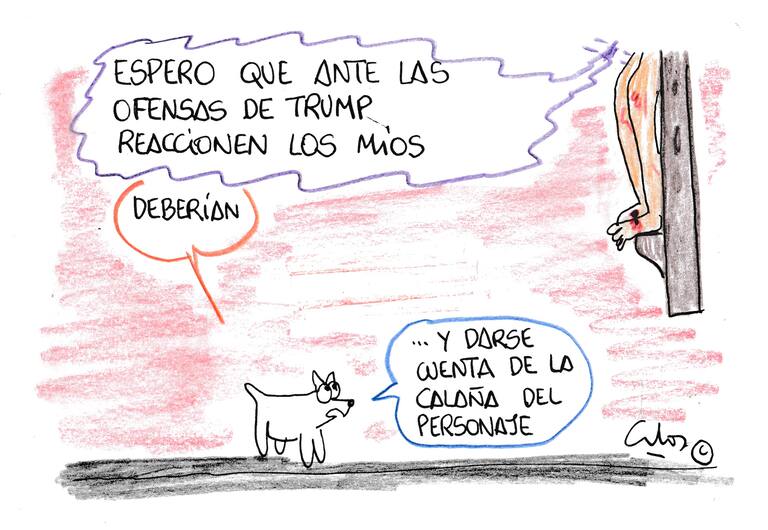 ESPERO QUE ANTE LAS
OFENSAS DE TRUMP
REACCIONEN LOS MÍOS
DEBERÍAN
... Y DARSE
CUENTA DE LA
CALAÑA DEL
PERSONAJE
©